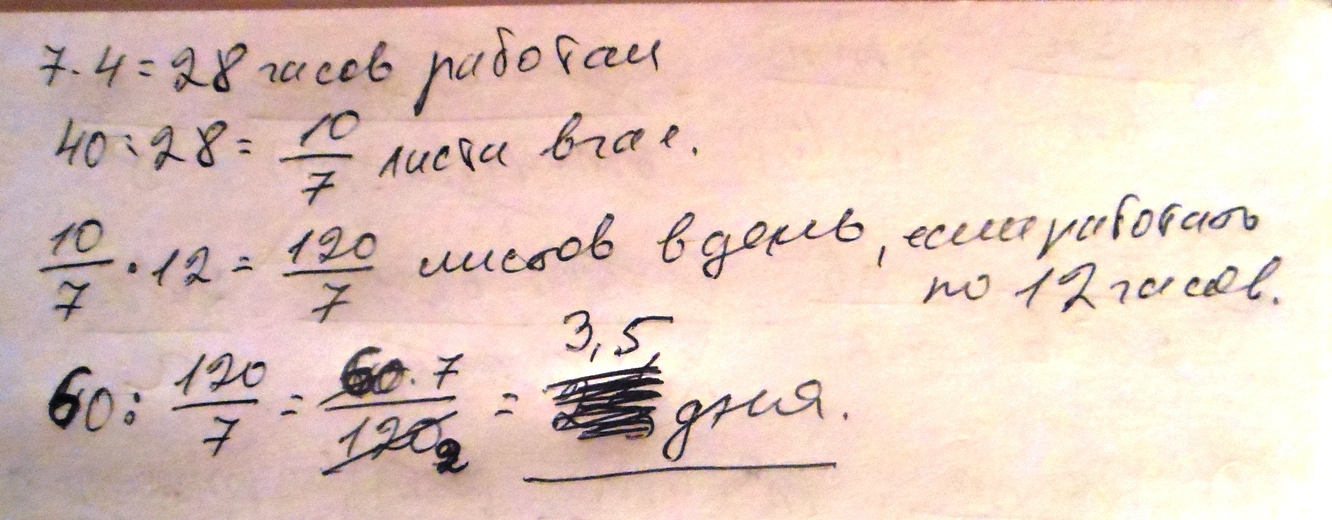 7·4=28 часов работал
40:28= 10/7 листа в час.
10/7 · 12 = 120/7 листов в день, если работать
по 12 часов.
60: 120/7 = 60·7/120 2 = 3,5 дня.